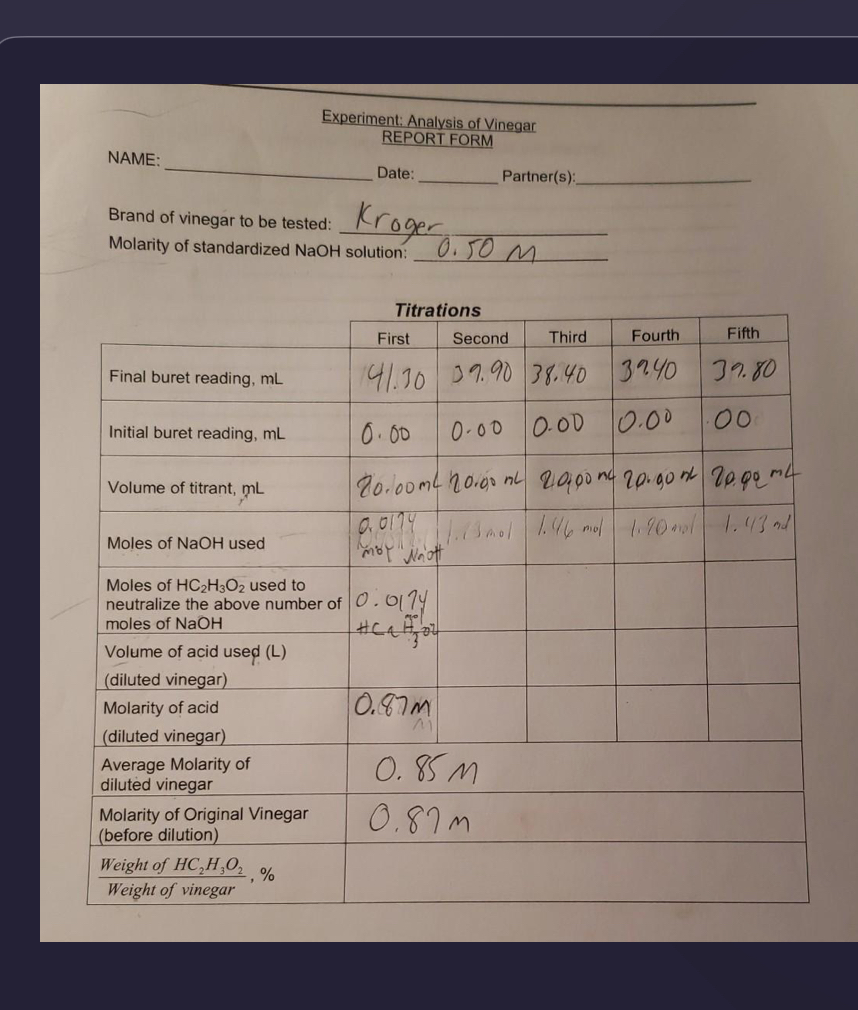 Experiment: Analysis of Vinegar
REPORT FORM
NAME:
Date: Partner(s):
Brand of vinegar to be tested: Kroger
Molarity of standardized NaOH solution: 0.50 M
Titrations
First Second Third Fourth Fifth
Final buret reading, mL 41.30 39.90 38.40 39.40 39.80
Initial buret reading, mL 0.00 0.00 0.00 0.00 00
Volume of titrant, mL 20.00 mL 20.00 mL 20.00 mL 20.00 mL 20.00 mL
Moles of NaOH used 0.0174 mol NaOH 1.46 mol 1.90 mol 1.43 mol
Moles of HC₂H₃O₂ used to
neutralize the above number of 0.0174
moles of NaOH HC₂H₃O₂
Volume of acid used (L)
(diluted vinegar)
Molarity of acid 0.87 M
(diluted vinegar)
Average Molarity of 0.85 M
diluted vinegar
Molarity of Original Vinegar 0.87 M
(before dilution)
Weight of HC₂H₃O₂ , %
Weight of vinegar